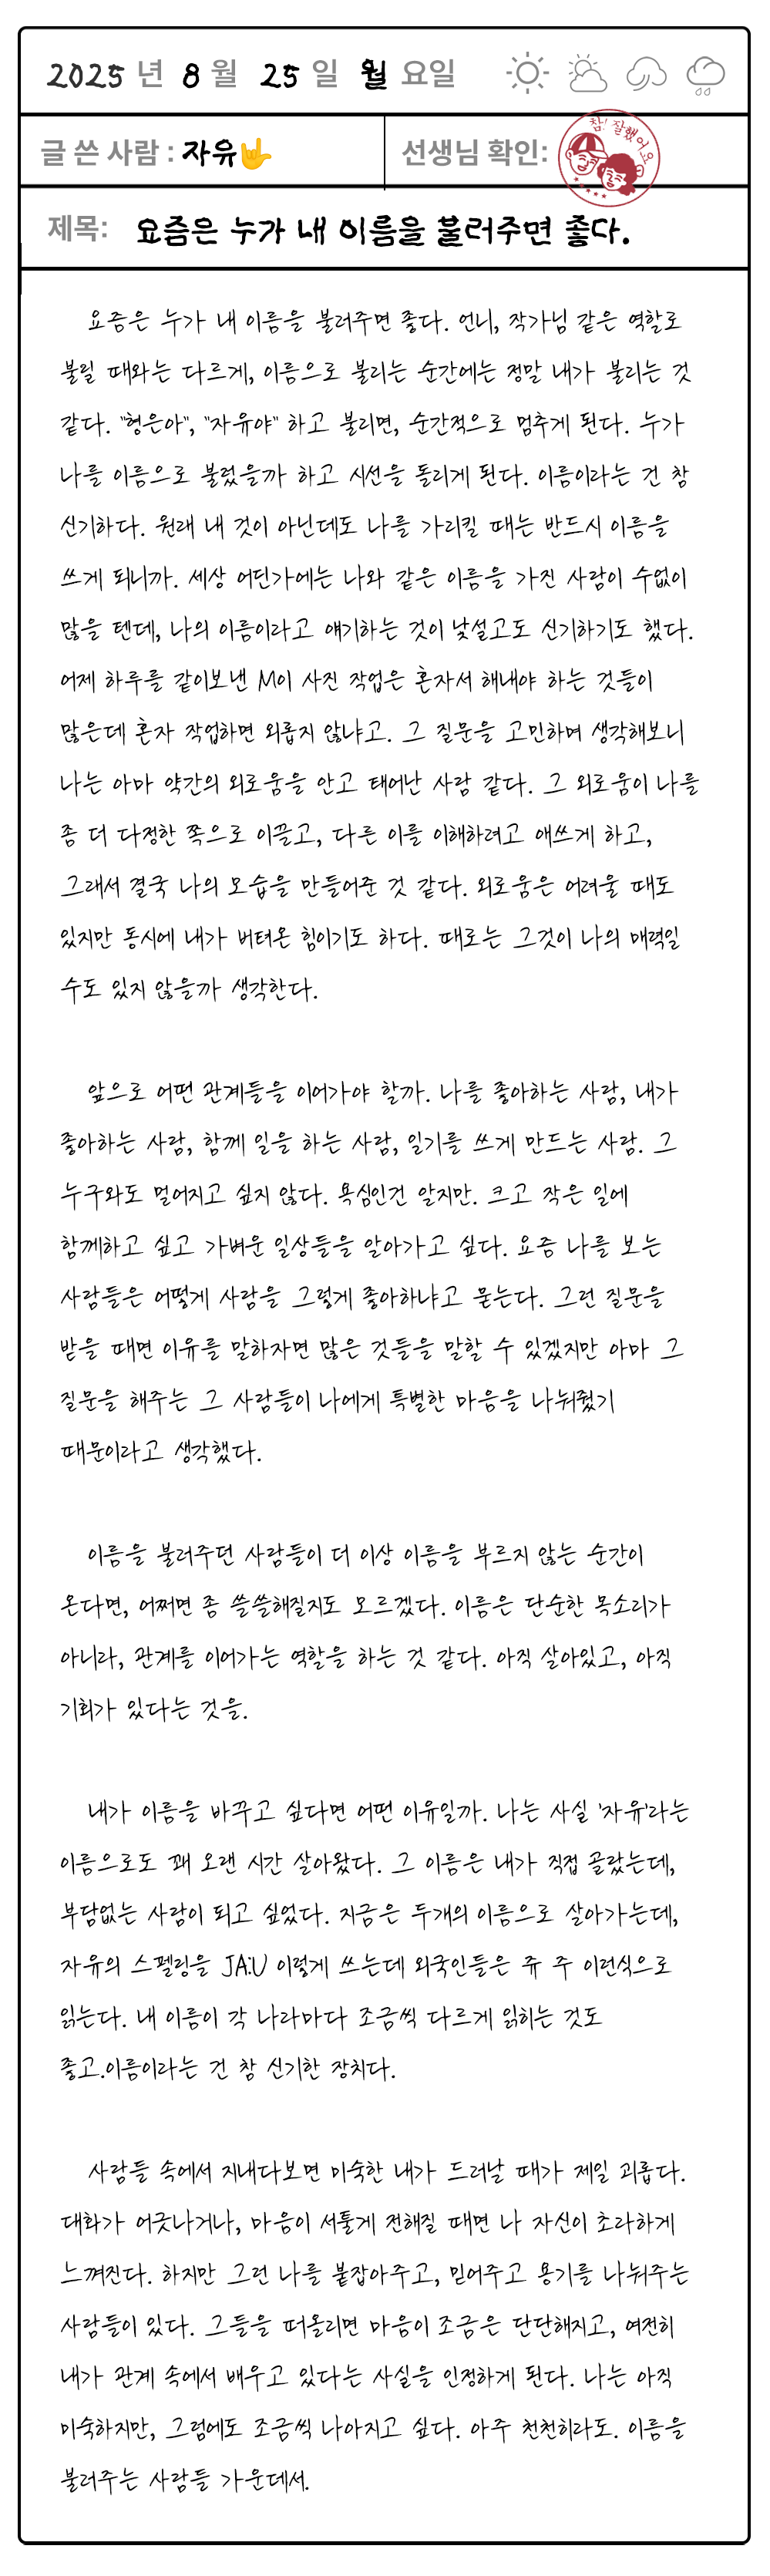 2025 년 8 월 25 일 월 요일
글 쓴 사람 : 자유🤟
선생님 확인:
참! 잘했어요
제목: 요즘은 누가 내 이름을 불러주면 좋다.
요즘은 누가 내 이름을 불러주면 좋다. 언니, 작가님 같은 역할로
불릴 때와는 다르게, 이름으로 불리는 순간에는 정말 내가 불리는 것
같다. "형은아", "자유야" 하고 불리면, 순간적으로 멈추게 된다. 누가
나를 이름으로 불렀을까 하고 시선을 돌리게 된다. 이름이라는 건 참
신기하다. 원래 내 것이 아닌데도 나를 가리킬 때는 반드시 이름을
쓰게 되니까. 세상 어딘가에는 나와 같은 이름을 가진 사람이 수없이
많을 텐데, 나의 이름이라고 얘기하는 것이 낯설고도 신기하기도 했다.
어제 하루를 같이보낸 M이 사진 작업은 혼자서 해내야 하는 것들이
많은데 혼자 작업하면 외롭지 않냐고. 그 질문을 고민하며 생각해보니
나는 아마 약간의 외로움을 안고 태어난 사람 같다. 그 외로움이 나를
좀 더 다정한 쪽으로 이끌고, 다른 이를 이해하려고 애쓰게 하고,
그래서 결국 나의 모습을 만들어준 것 같다. 외로움은 어려울 때도
있지만 동시에 내가 버텨온 힘이기도 하다. 때로는 그것이 나의 매력일
수도 있지 않을까 생각한다.
앞으로 어떤 관계들을 이어가야 할까. 나를 좋아하는 사람, 내가
좋아하는 사람, 함께 일을 하는 사람, 일기를 쓰게 만드는 사람. 그
누구와도 멀어지고 싶지 않다. 욕심인건 알지만. 크고 작은 일에
함께하고 싶고 가벼운 일상들을 알아가고 싶다. 요즘 나를 보는
사람들은 어떻게 사람을 그렇게 좋아하냐고 묻는다. 그런 질문을
받을 때면 이유를 말하자면 많은 것들을 말할 수 있겠지만 아마 그
질문을 해주는 그 사람들이 나에게 특별한 마음을 나눠줬기
때문이라고 생각했다.
이름을 불러주던 사람들이 더 이상 이름을 부르지 않는 순간이
온다면, 어쩌면 좀 쓸쓸해질지도 모르겠다. 이름은 단순한 목소리가
아니라, 관계를 이어가는 역할을 하는 것 같다. 아직 살아있고, 아직
기회가 있다는 것을.
내가 이름을 바꾸고 싶다면 어떤 이유일까. 나는 사실 '자유'라는
이름으로도 꽤 오랜 시간 살아왔다. 그 이름은 내가 직접 골랐는데,
부담없는 사람이 되고 싶었다. 지금은 두개의 이름으로 살아가는데,
자유의 스펠링을 JA:U 이렇게 쓰는데 외국인들은 쥬 주 이런식으로
읽는다. 내 이름이 각 나라마다 조금씩 다르게 읽히는 것도
좋고.이름이라는 건 참 신기한 장치다.
사람들 속에서 지내다보면 미숙한 내가 드러날 때가 제일 괴롭다.
대화가 어긋나거나, 마음이 서툴게 전해질 때면 나 자신이 초라하게
느껴진다. 하지만 그런 나를 붙잡아주고, 믿어주고 용기를 나눠주는
사람들이 있다. 그들을 떠올리면 마음이 조금은 단단해지고, 여전히
내가 관계 속에서 배우고 있다는 사실을 인정하게 된다. 나는 아직
미숙하지만, 그럼에도 조금씩 나아지고 싶다. 아주 천천히라도. 이름을
불러주는 사람들 가운데서.